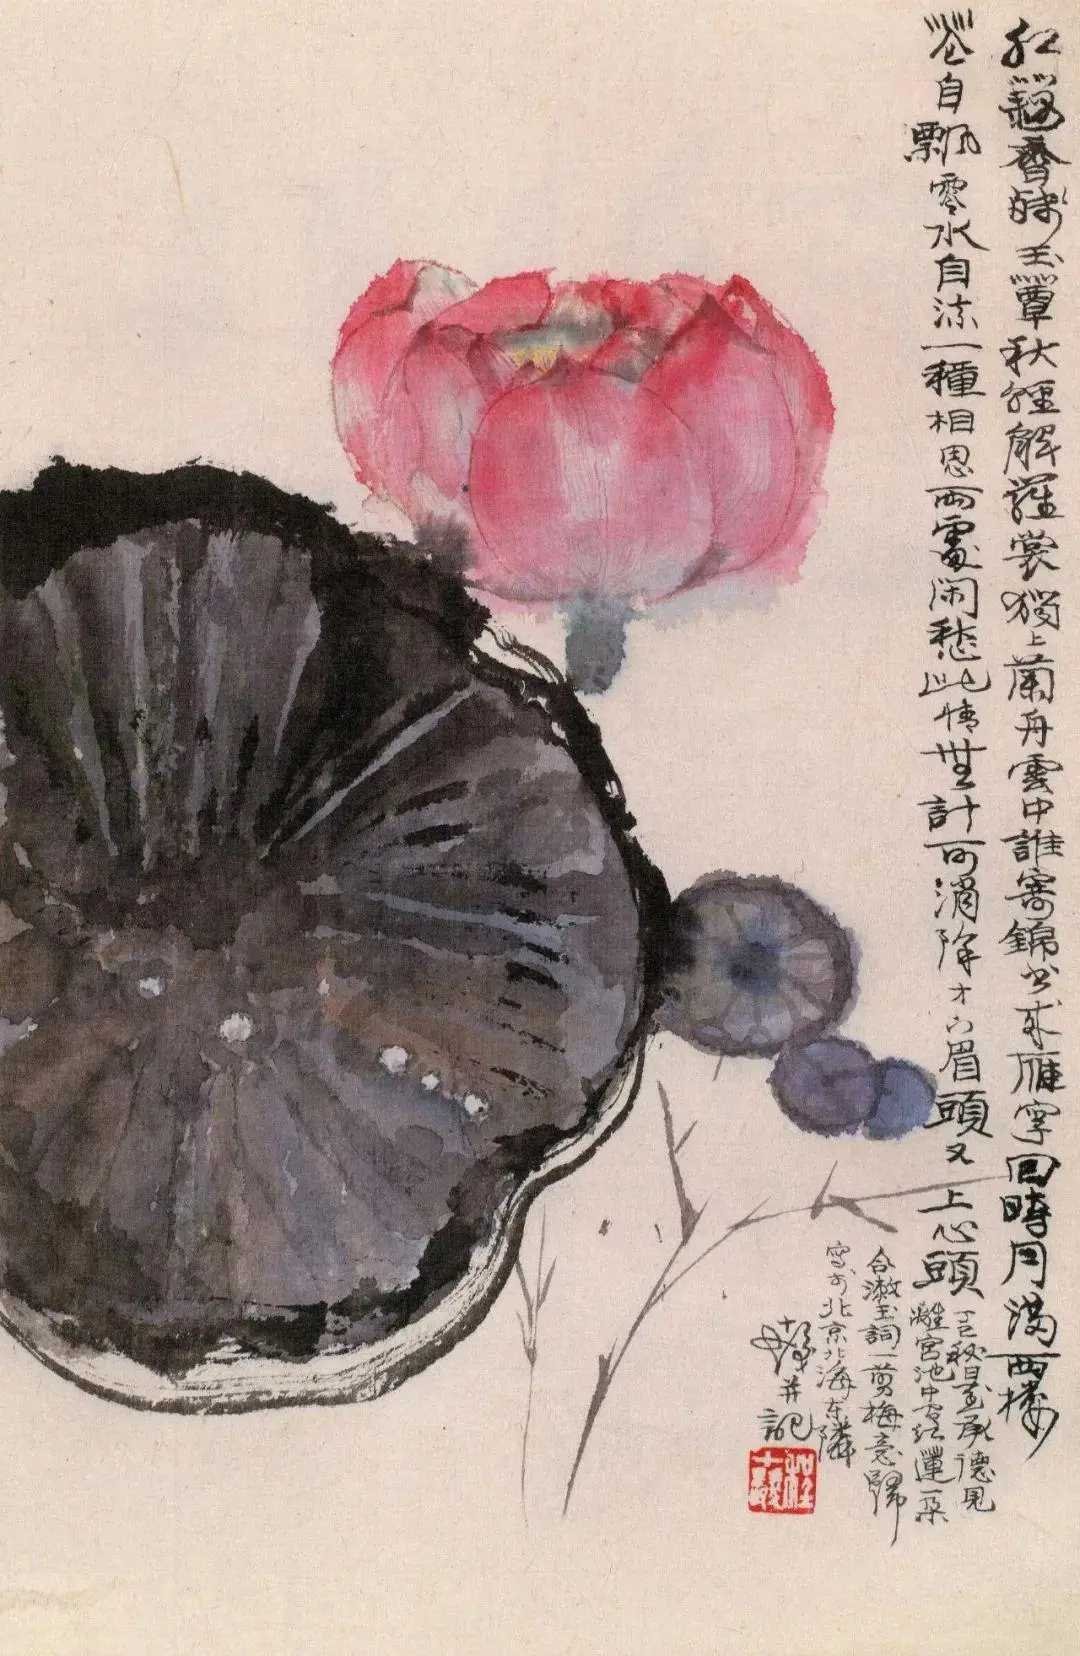 紅藕香殘玉簟秋輕解羅裳獨上蘭舟雲中誰寄錦書來雁字回時月滿西樓
花自飄零水自流一種相思兩處閑愁此情無計可消除才下眉頭又上心頭
丁巳秋日至承德見
離宮池中有紅蓮一朵
合漱玉詞一剪梅意歸
寫於北京北海東隣
十髮并記
程十髮